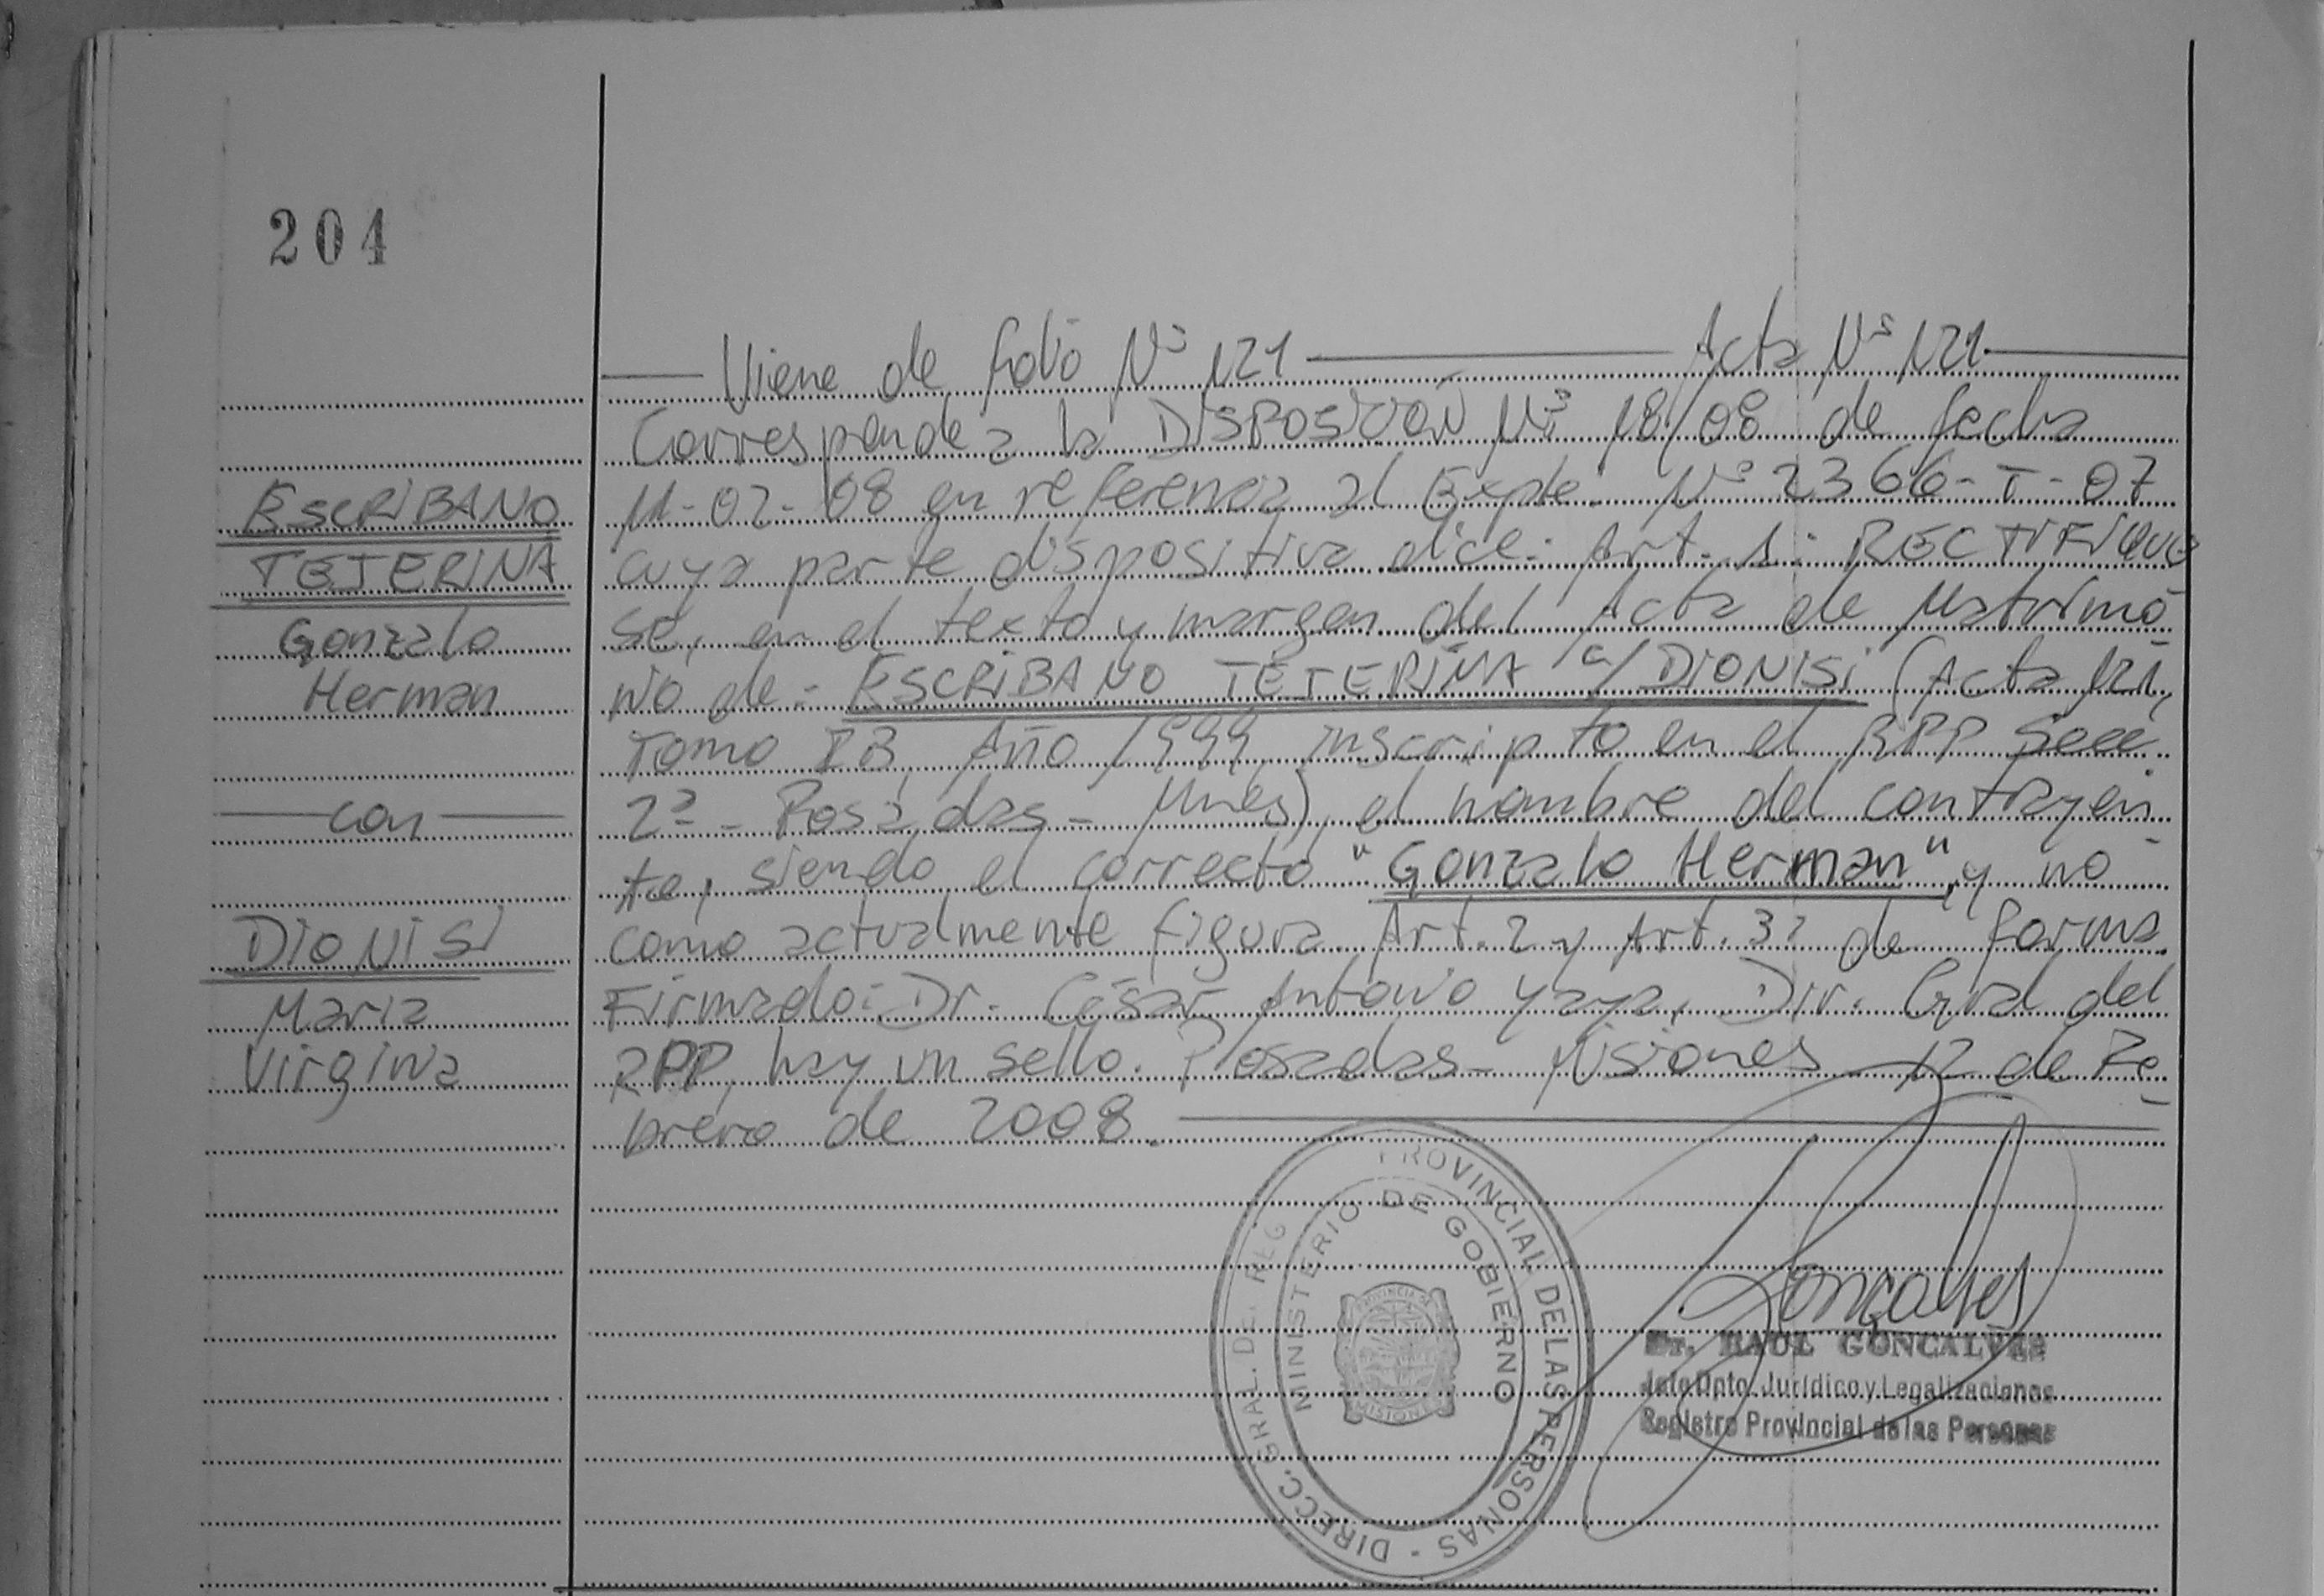 204
Viene de folio Nº 121 Acta Nº 121
Corresponde a la DISPOSICIÓN Nº 18/08 de fecha
11-02-08 en referencia al Expte. Nº 2366-T-07
cuya parte dispositiva dice: Art. 1: RECTIFIQUE
se, en el texto y margen del Acta de Matrimo
nio de: ESCRIBANO TETERINA c/ DIONISI (Acta 121,
Tomo IB, Año 1999, inscripto en el RPP Secc
2ª - Posadas - Mnes), el nombre del contrayen
te, siendo el correcto "Gonzalo Herman", y no
como actualmente figura. Art. 2 y Art. 3: de forma.
Firmado: Dr. César Antonio Yaya, Dir. Gral del
RPP, hay un sello. Posadas - Misiones 12 de Fe-
brero de 2008.
ESCRIBANO
TETERINA
Gonzalo
Herman
con
DIONISI
Maria
Virginia
DIRECC. GRAL. DEL REG PROVINCIAL DE LAS PERSONAS -
MINISTERIO DE GOBIERNO
PROVINCIA DE
MISIONES
Goncalves
Dr. RAUL GONCALVES
Jefe Dpto. Jurídico y Legalizaciones
Registro Provincial de las Personas